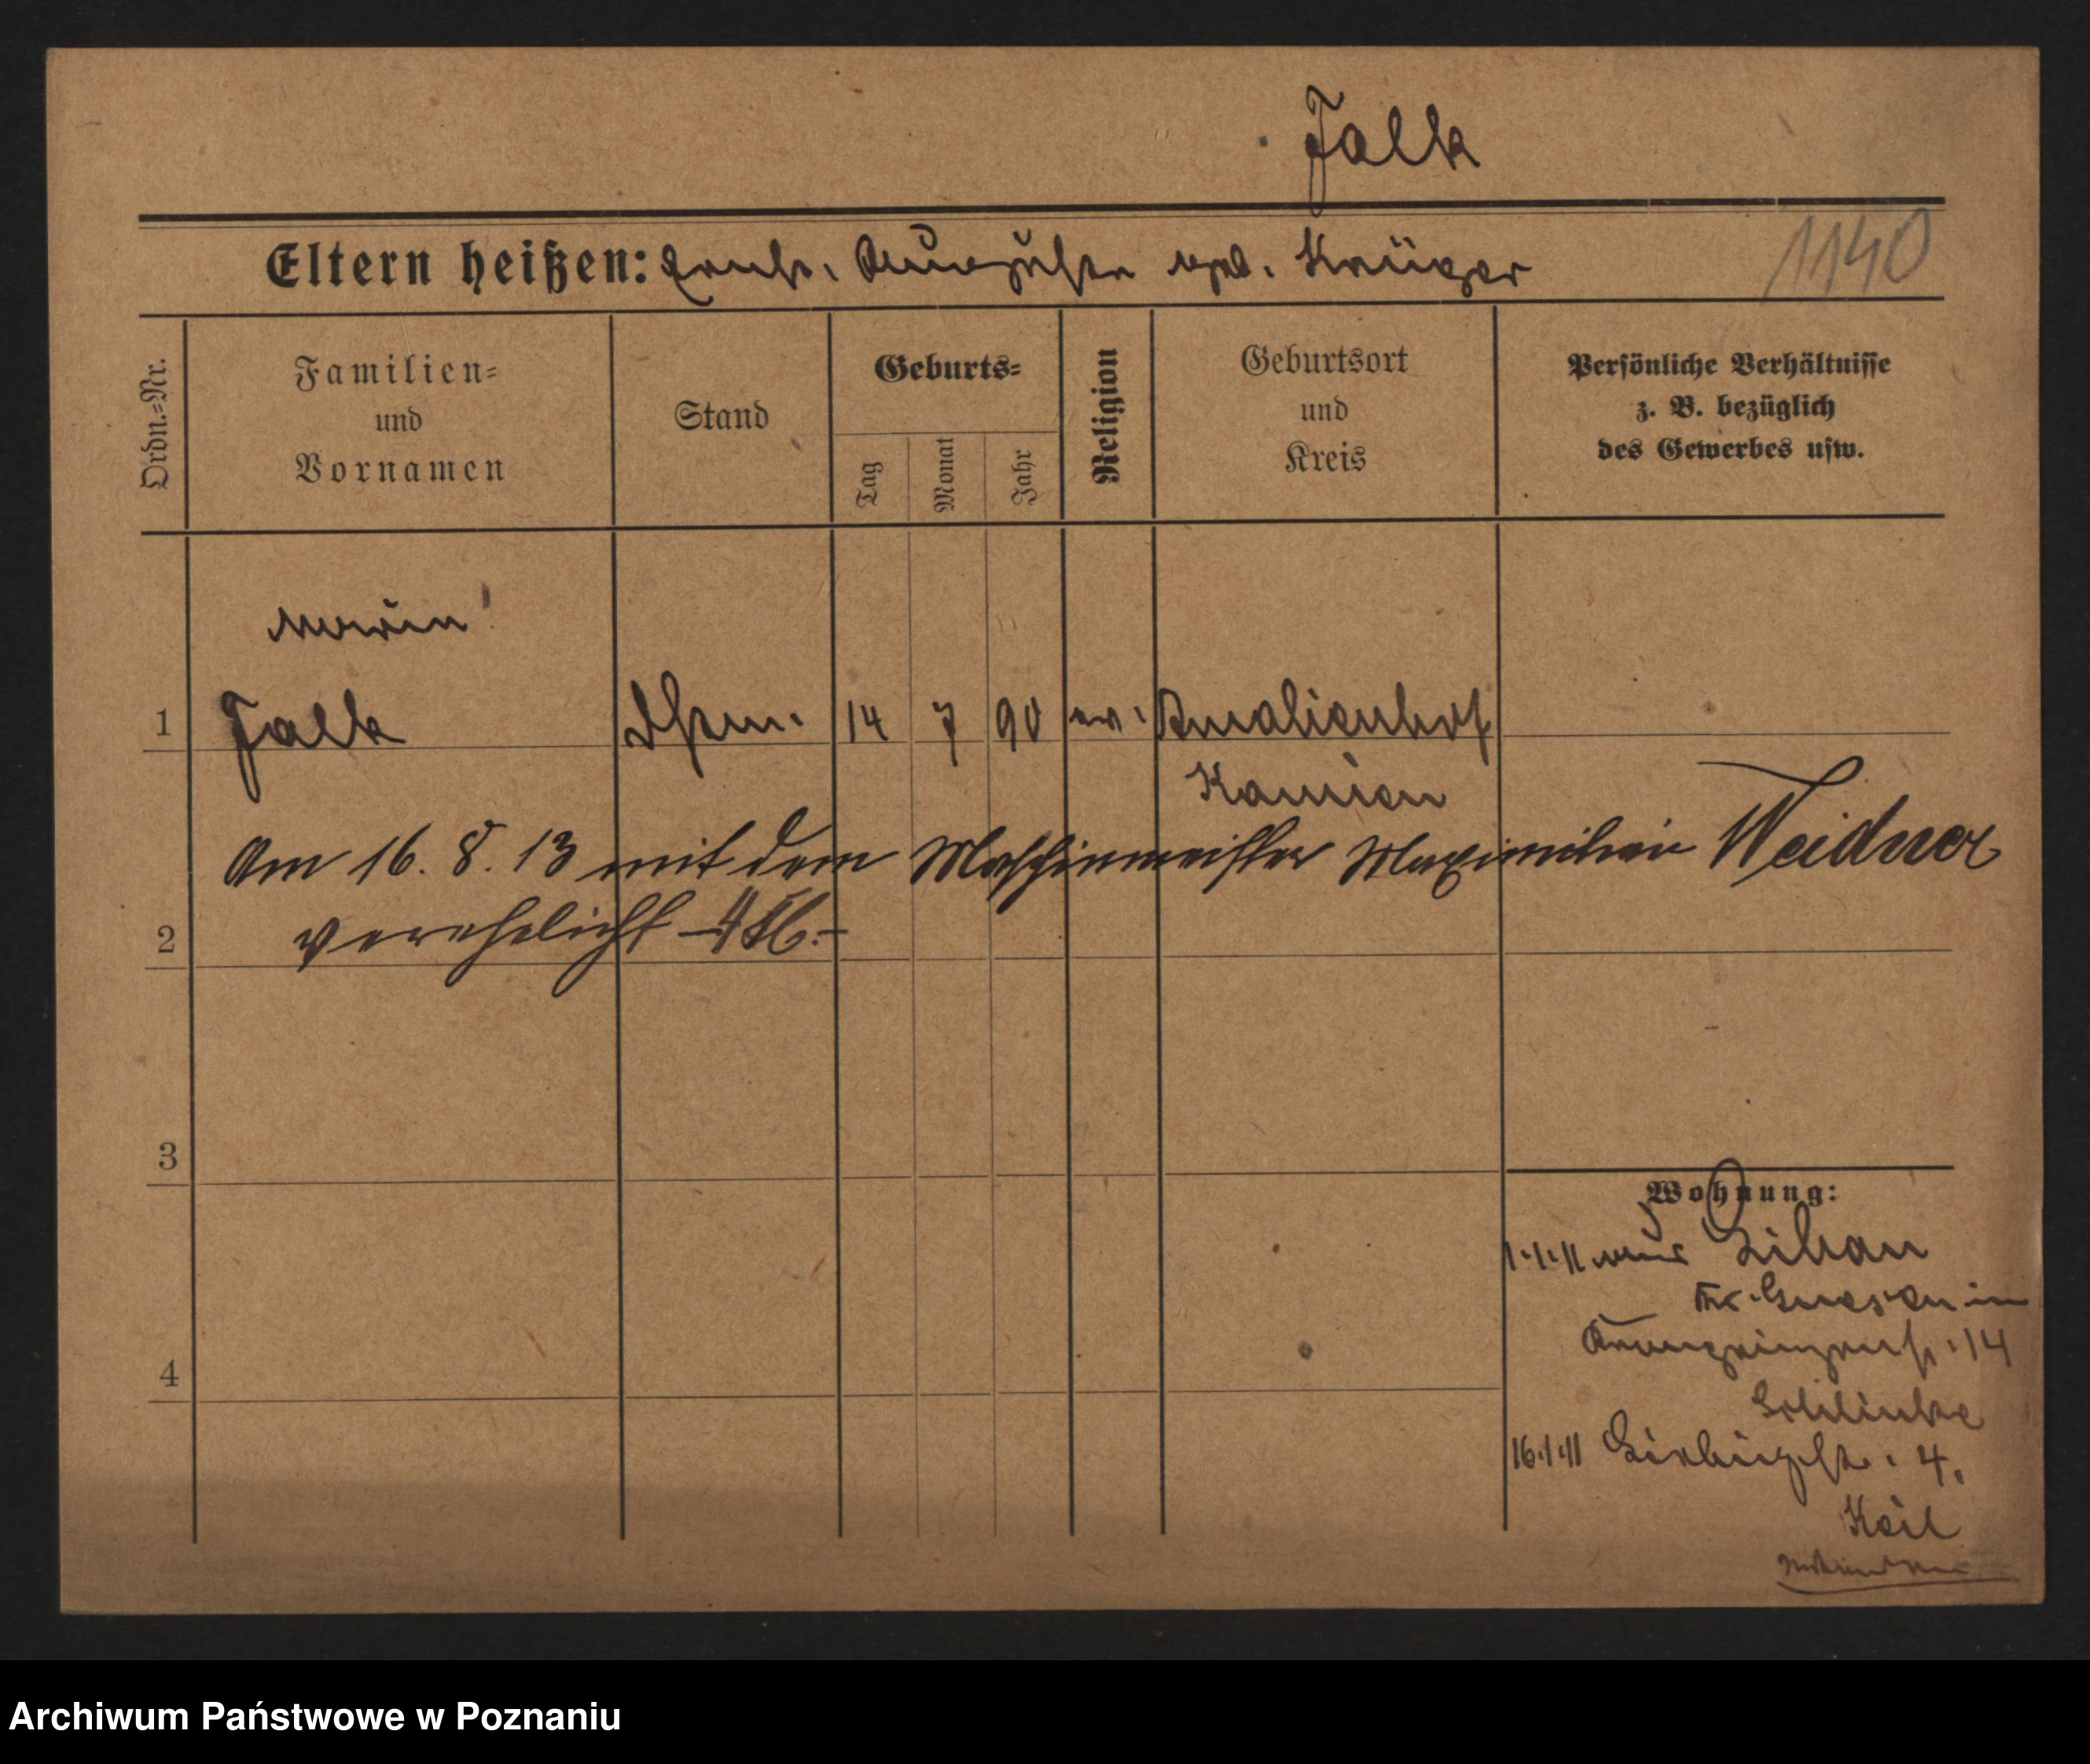 Falk
Eltern heißen: Ernst, Auguste geb. Krüger
1140
Ordn.-Nr.
Familien-
und
Vornamen
Stand
Geburts-
Tag
Monat
Jahr
Religion
Geburtsort
und
Kreis
Persönliche Verhältnisse
z. B. bezüglich
des Gewerbes usw.
1 Falk 14 7 90 ev. Amalienhof
Kamien
Am 16. 8. 13 mit dem Maschinenmeister Maximilian Weidner
2 verehelicht
3
Wohnung:
1.1.11 aus Libau
Kr. Gnesen in
Kronprinzenstr. 14
4
16.1.11 Liebigstr. 4.
Keil
Archiwum Państwowe w Poznaniu